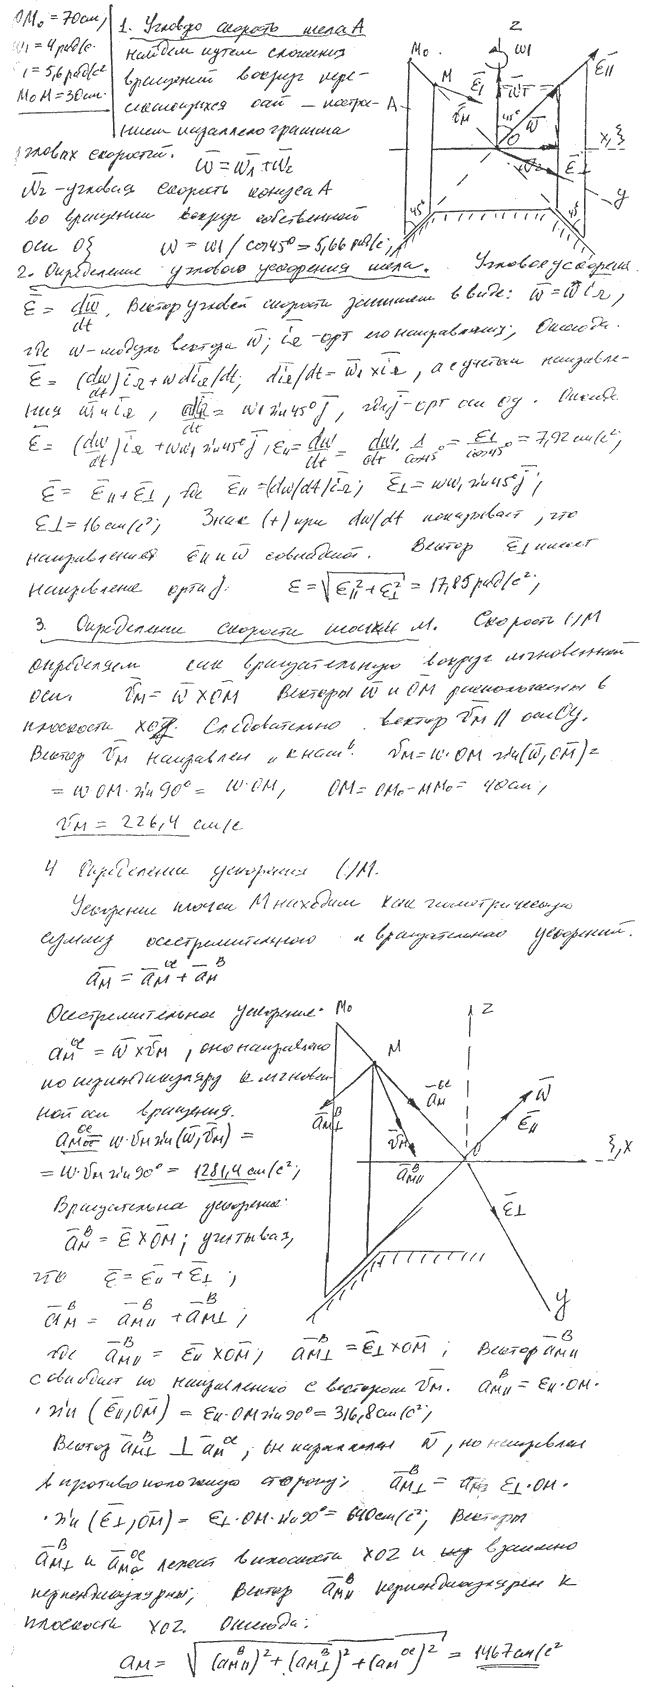 OM₀ = 70 см,
ω₁ = 4 рад/с
ε₁ = 5,6 рад/с²
M₀M = 30 см.
1. Угловую скорость тела А
найдем путем сложения
вращений вокруг пере-
секающихся осей – постро-
ением параллелограмма
угловых скоростей. ω̄ = ω̄₁ + ω̄₂
ω̄₂ – угловая скорость конуса А
во вращении вокруг собственной
оси Oξ ω = ω₁ / cos45° = 5,66 рад/с;
M₀
M
A
z
ω₁
ε̄₁
ω̄₁
v̄м
45°
ω̄
O
ε̄∥
x, ξ
ω₂
ε̄⊥
y
45°
45°
2. Определение углового ускорения тела. Угловое ускорение
ε̄ = dω̄/dt. Вектор угловой скорости запишем в виде: ω̄ = ω i̅Ω,
где ω – модуль вектора ω̄; i̅Ω – орт его направления; Отсюда.
ε̄ = (dω/dt) i̅Ω + ω di̅Ω/dt; di̅Ω/dt = ω̄₁ × i̅Ω, а с учетом направле-
ния ω̄₁ и i̅Ω, di̅Ω/dt = ω₁ sin45° j̅, где j̅ – орт оси Oy. Отсюда
ε̄ = (dω/dt) i̅Ω + ωω₁ sin45° j̅; ε∥ = dω/dt = dω₁/dt · 1/cos45° = ε₁/cos45° = 7,92 см/с²;
ε̄ = ε̄∥ + ε̄⊥, где ε̄∥ = (dω/dt) i̅Ω; ε̄⊥ = ωω₁ sin45° j̅;
ε⊥ = 16 см/с²; Знак (+) при dω/dt показывает, что
направления ε̄∥ и ω̄ совпадают. Вектор ε̄⊥ имеет
направление орта j. ε = √(ε∥² + ε⊥²) = 17,85 рад/с²;
3. Определение скорости точки М. Скорость (·)М
определяем как вращательную вокруг мгновенной
оси. v̄м = ω̄ × O̅M̅ Векторы ω̄ и O̅M̅ расположены в
плоскости xOz. Следовательно вектор v̄м ∥ оси Oy.
Вектор v̄м направлен „к нам". vм = ω·OM sin(ω̄, O̅M̅) =
= ω·OM·sin90° = ω·OM, OM = OM₀ – MM₀ = 40 см;
vм = 226,4 см/с
4 Определение ускорения (·)М.
Ускорение точки М находим как геометрическую
сумму осестремительного и вращательного ускорений.
āм = āм^ос + āм^в
Осестремительное ускорение:
āм^ос = ω̄ × v̄м, оно направлено
по перпендикуляру к мгновен-
ной оси вращения.
aм^ос = ω·vм sin(ω̄, v̄м) =
= ω·vм sin90° = 1281,4 см/с²;
Вращательное ускорение:
āм^в = ε̄ × O̅M̅; учитывая,
что ε̄ = ε̄∥ + ε̄⊥;
āм^в = āм∥^в + āм⊥^в;
M₀
M
z
āм^ос
ω̄
ε̄∥
āм⊥^в
v̄м
O
āм∥^в
ξ, x
ε̄⊥
y
где āм∥^в = ε̄∥ × O̅M̅; āм⊥^в = ε̄⊥ × O̅M̅; Вектор āм∥^в
совпадает по направлению с вектором v̄м. aм∥^в = ε∥·OM·
· sin(ε̄∥, O̅M̅) = ε∥·OM sin90° = 316,8 см/с²;
Вектор āм⊥^в ⊥ āм^ос, он параллелен ω̄, но направлен
в противоположную сторону; aм⊥^в = ε⊥·OM·
· sin(ε̄⊥, O̅M̅) = ε⊥·OM·sin90° = 640 см/с²; Векторы
āм⊥^в и āм^ос лежат в плоскости xOz и взаимно
перпендикулярны; Вектор āм∥^в перпендикулярен к
плоскости xOz. Отсюда:
aм = √((aм∥^в)² + (aм⊥^в)² + (aм^ос)²) = 1467 см/с²